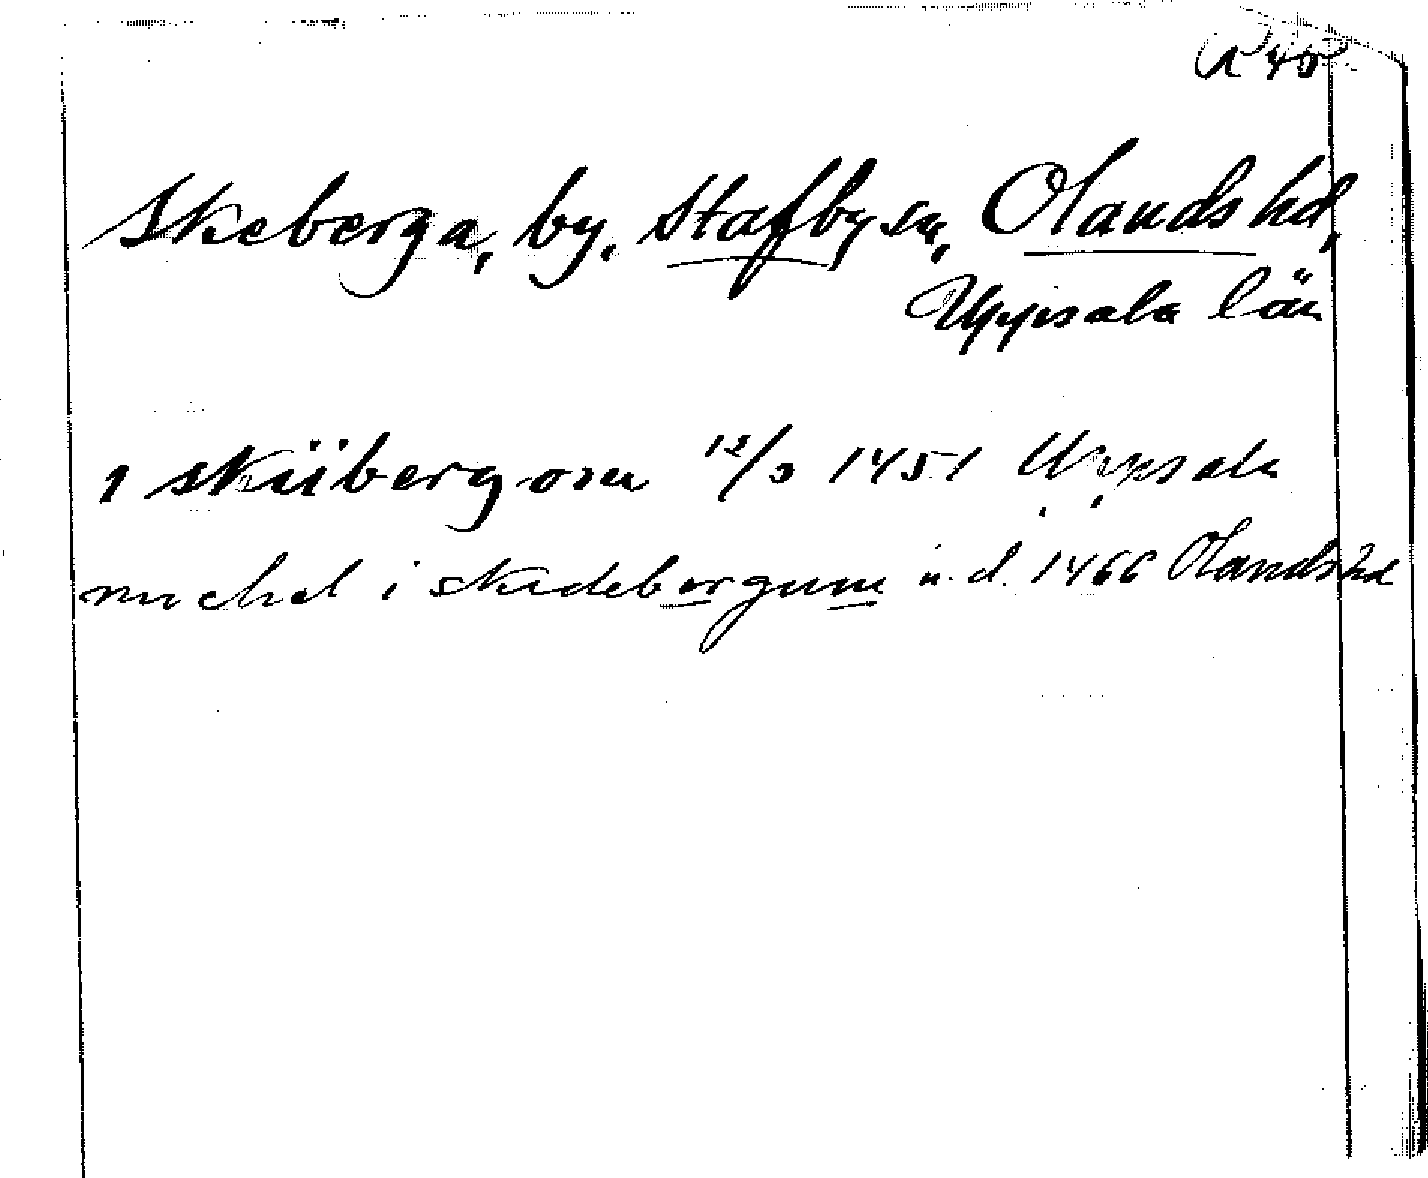 R 45
Skeberga, by, Stafby sn, Olands hd,
Uppsala län
i skiibergom 12/3 1451 Uppsala
michel i skedeborgum u. d. 1466 Olands hd